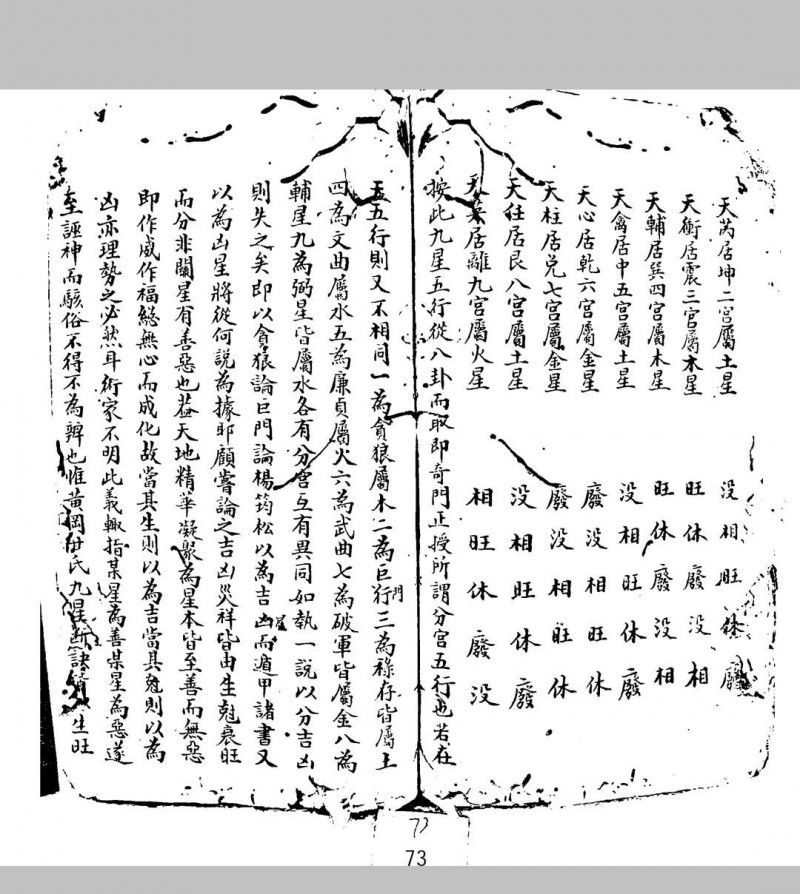 天芮居坤二宮屬土星 没相旺休廢
天衝居震三宮屬木星 旺休廢没相
天輔居巽四宮屬木星 旺休廢没相
天禽居中五宮屬土星 没相旺休廢
天心居乾六宮屬金星 廢没相旺休
天柱居兌七宮屬金星 廢没相旺休
天任居艮八宮屬土星 没相旺休廢
天英居離九宮屬火星 相旺休廢没
按此九星五行從八卦而取即奇門正授所謂分宮五行也若在
五行則又不相同一為貪狼屬木二為巨門三為祿存皆屬土
四為文曲屬水五為廉貞屬火六為武曲七為破軍皆屬金八為
輔星九為弼星皆屬水各有分宮互有異同如執一說以分吉凶
則失之矣即以貪狼論巨門論楊筠松以為吉星而遁甲諸書又
以為凶星將從何説為據耶顧嘗論之吉凶災祥皆由生尅衰旺
而分非關星有善惡也葢天地精華凝聚為星本皆至善而無惡
即作威作福総無心而成化故當其生則以為吉當其尅則以為
凶亦理勢之必然耳術家不明此義輙指某星為善某星為惡遂
至誣神而駭俗不得不為辨也惟黄岡 氏九星断訣 生旺
73
73